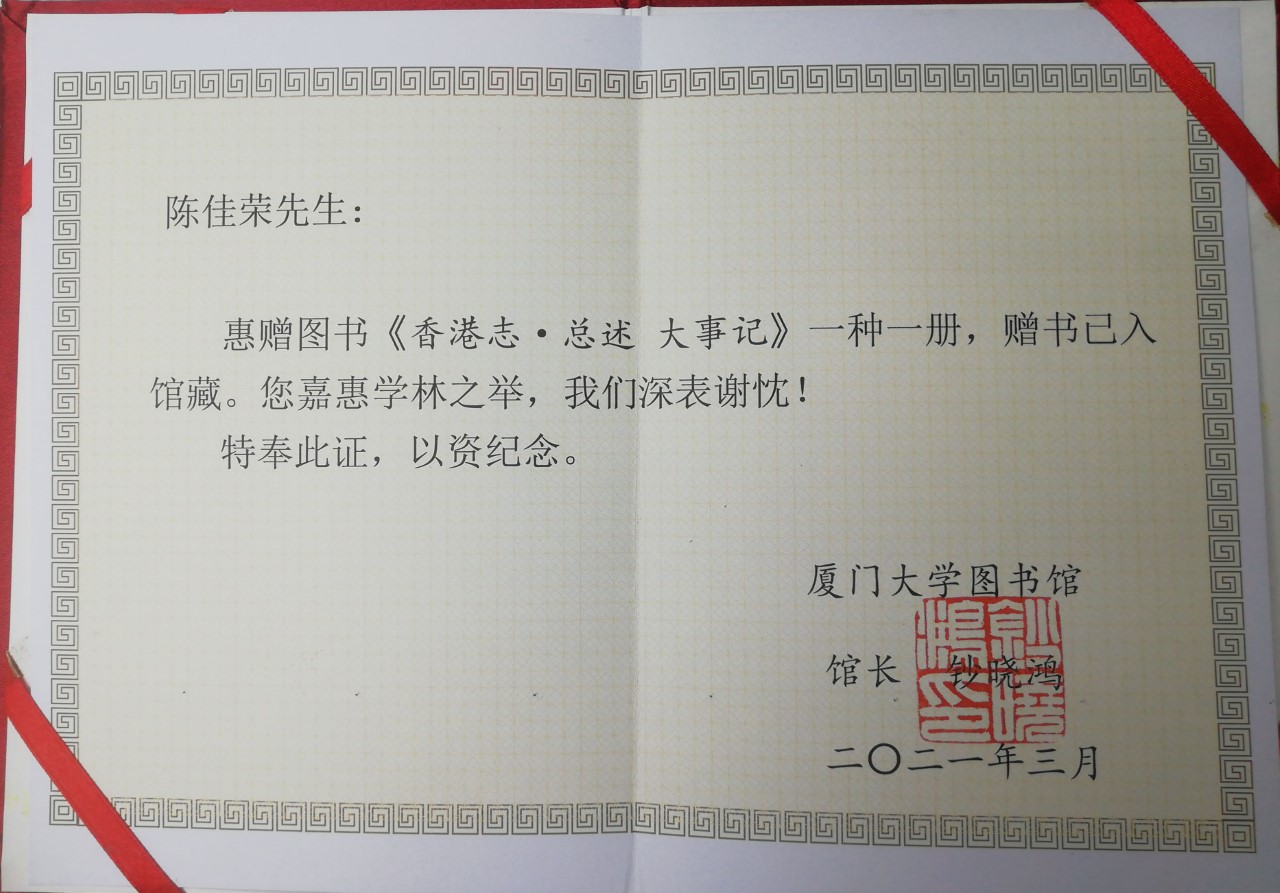 陈佳荣先生：
惠赠图书《香港志·总述 大事记》一种一册，赠书已入
馆藏。您嘉惠学林之举，我们深表谢忱！
特奉此证，以资纪念。
厦门大学图书馆
馆长 钞晓鸿
钞晓鸿印
二〇二一年三月